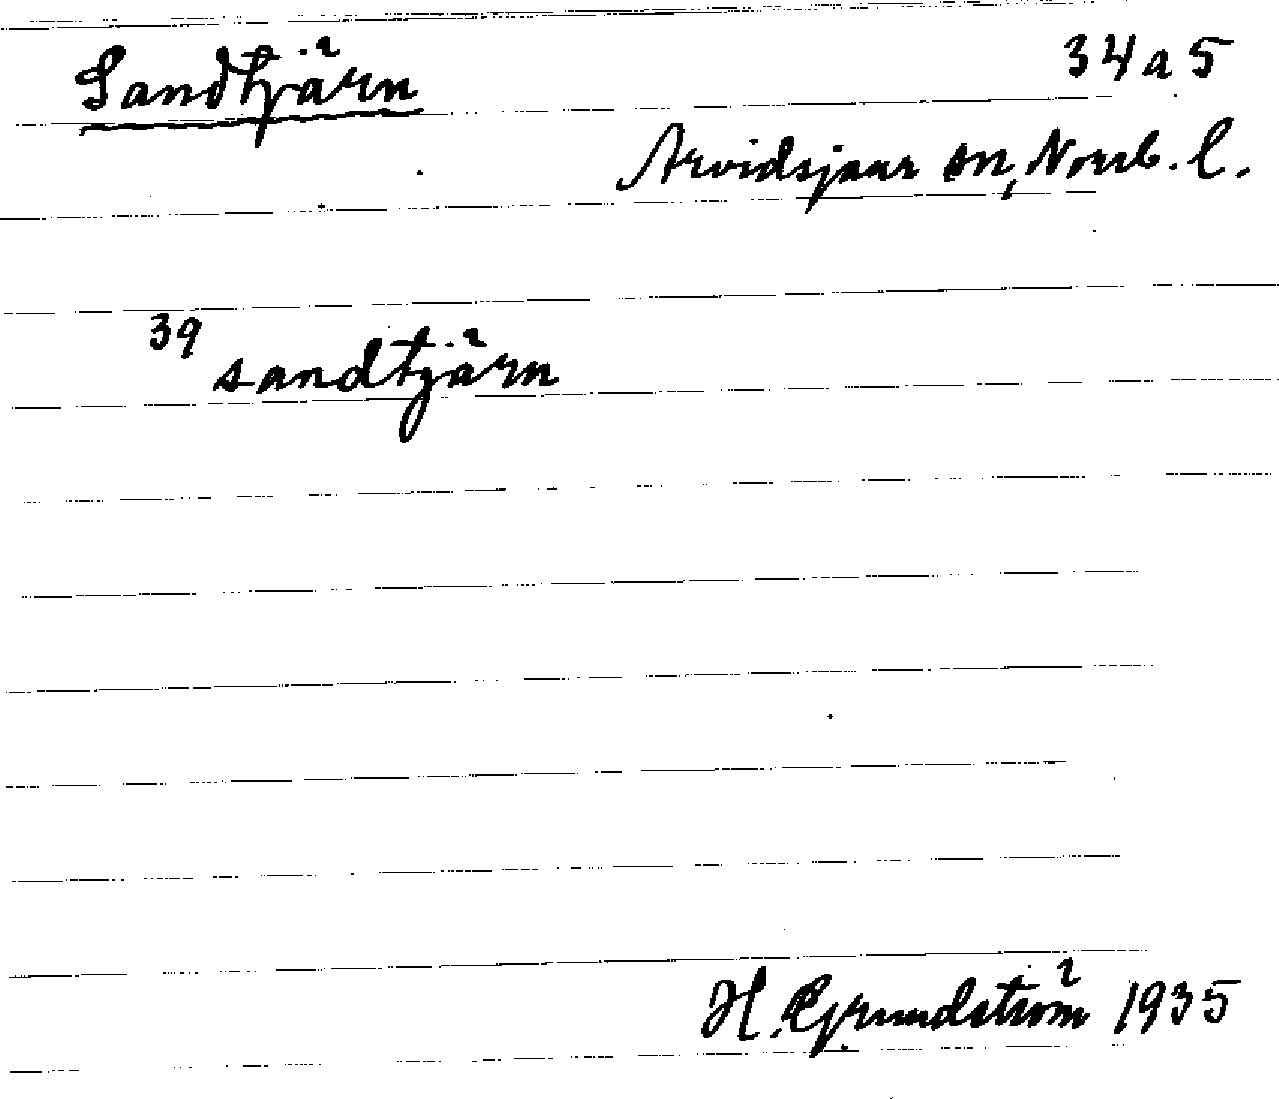 Sandtjärn
34 a 5
Arvidsjaur sn, Norrb. l.
39 sandtjärn
H. Grundström 1935